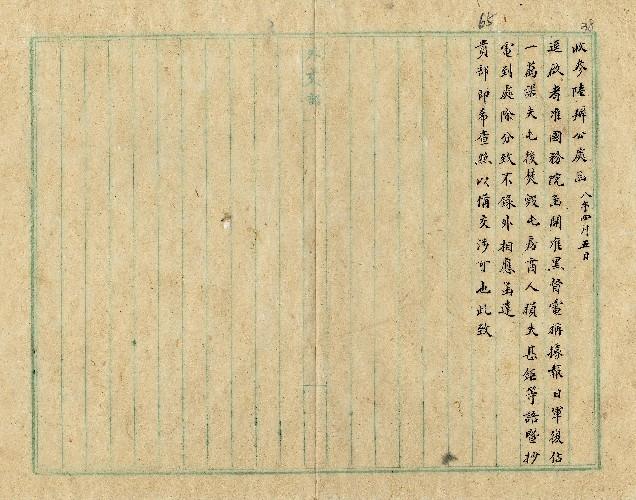 65
38
收參陸辦公處函 八年四月五日
逕啟者准國務院函開准黑督電稱據報日軍復佔
一萬梁夫屯後焚毀屯房商人損失甚鉅等語暨抄
電到處除分致不錄外相應函達
貴部即希查照以備交涉可也此致